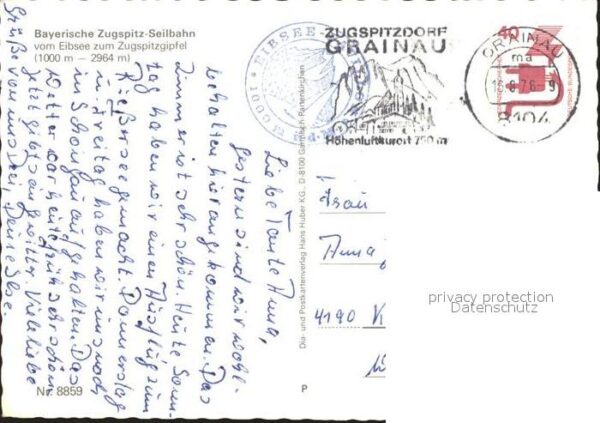 Bayerische Zugspitz-Seilbahn
vom Eibsee zum Zugspitzgipfel
(1000 m — 2964 m)
EIBSEE
1000 m
ZUGSPITZDORF
GRAINAU
Höhenluftkurort 750 m
GRAINAU
ma
8.76.-9
8104
40
DEUTSCHE BUNDESPOST
Liebe Tante Anna,
gestern sind wir wohl-
behalten hier angekommen. Das
Zimmer ist sehr schön. Heute Sonn-
tag haben wir einen Ausflug zum
Rießersee gemacht. Donnerstag
u. Freitag haben wir uns noch
in Schongau aufgehalten. Das
Wetter war heute früh sehr schön.
Jetzt gibt es ein Gewitter. Viele liebe
Grüße von uns drei. Deine Else
Dia- und Postkartenverlag Hans Huber KG., D-8100 Garmisch-Partenkirchen
Frau
Anna
4190 K
Nr. 8859
P
privacy protection
Datenschutz